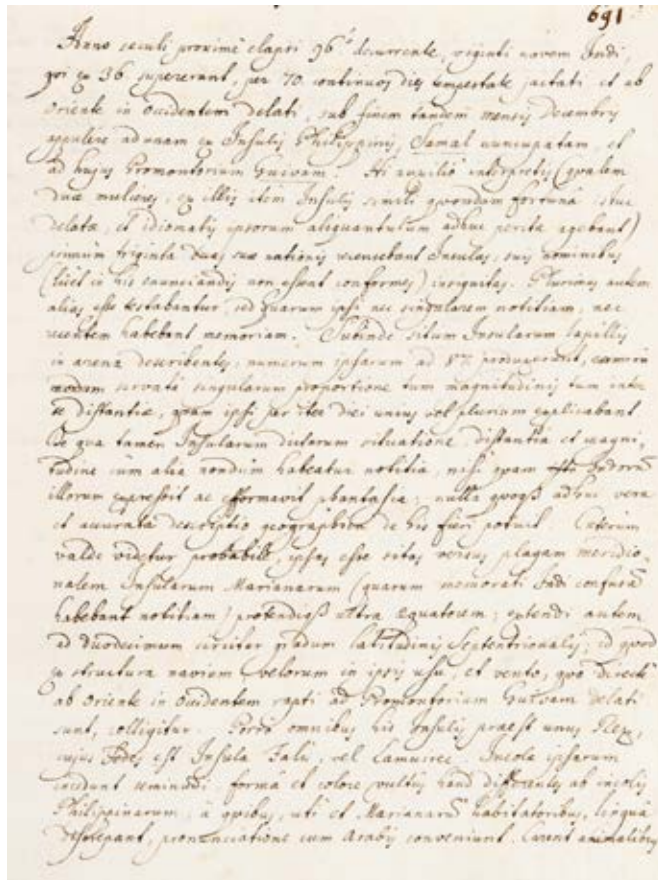 691
Anno seculi proximè elapsi 96.º decurrente, viginti novem Indi,
qvi ex 36 supererant, per 70 continuos dies tempestate jactati et ab
Oriente in Occidentem delati, sub finem tandem mensis Decembris
appulere ad unam ex Insulis Philippinis, Samal nuncupatam, et
ad hujus Promontorium Guivam. Hi auxilio interpretis (qvalem
duæ mulieres, ex illis item Insulis simili qvondam fortunâ istuc
delatæ, et idiomatis ipsorum aliquantulum adhuc peritæ agebant)
primùm triginta duas suæ nationis recensebant Insulas, suis nominibus
(licet in his enunciandis non essent conformes) insignitas. Plurimas autem
alias esse testabantur, sed quarum ipsi nec singularem notitiam, nec
recentem habebant memoriam. Subinde situm Insularum lapillis
in arena describentes, numerum ipsarum ad 87 produxerunt,
servatâ singularum proportione tum magnitudinis tum inter
se distantiæ, qvam ipsi per iter diei unius vel plurium explicabant
De qua tamen Insularum dictarum situatione, distantia et magni-
tudine cùm alia nondum habeatur notitia, nisi qvam Indorũ
illorum expressit ac efformavit phantasia; nulla qvoqß adhuc vera
et accurata descriptio geographica de his fieri potuit. Cæterùm
valde videtur probabile, ipsas esse sitas versus plagam meridio-
nalem Insularum Marianarum (quarum memorati Indi confusã
habebant notitiam) protendiqß ultra æquatorem; extendi autem
ad duodecimum circiter gradum latitudinis Septentrionalis; id qvod
ex structura navium velorum in ipsis usu, et vento, qvo directè
ab Oriente in Occidentem rapti ad Promontorium Guivam delati
sunt, colligitur. Porrò omnibus his Insulis praest unus Rex,
cujus Sedes est Insula Falu, vel Lamurec. Incolæ ipsarum
incedunt seminudi, formâ et colore vultûs haud differentes ab incolis
Philippinarum; à qvibus, uti et Marianarũ habitatoribus, linguâ
discrepant, pronunciatione cum Arabis conveniunt. Carent animalibus